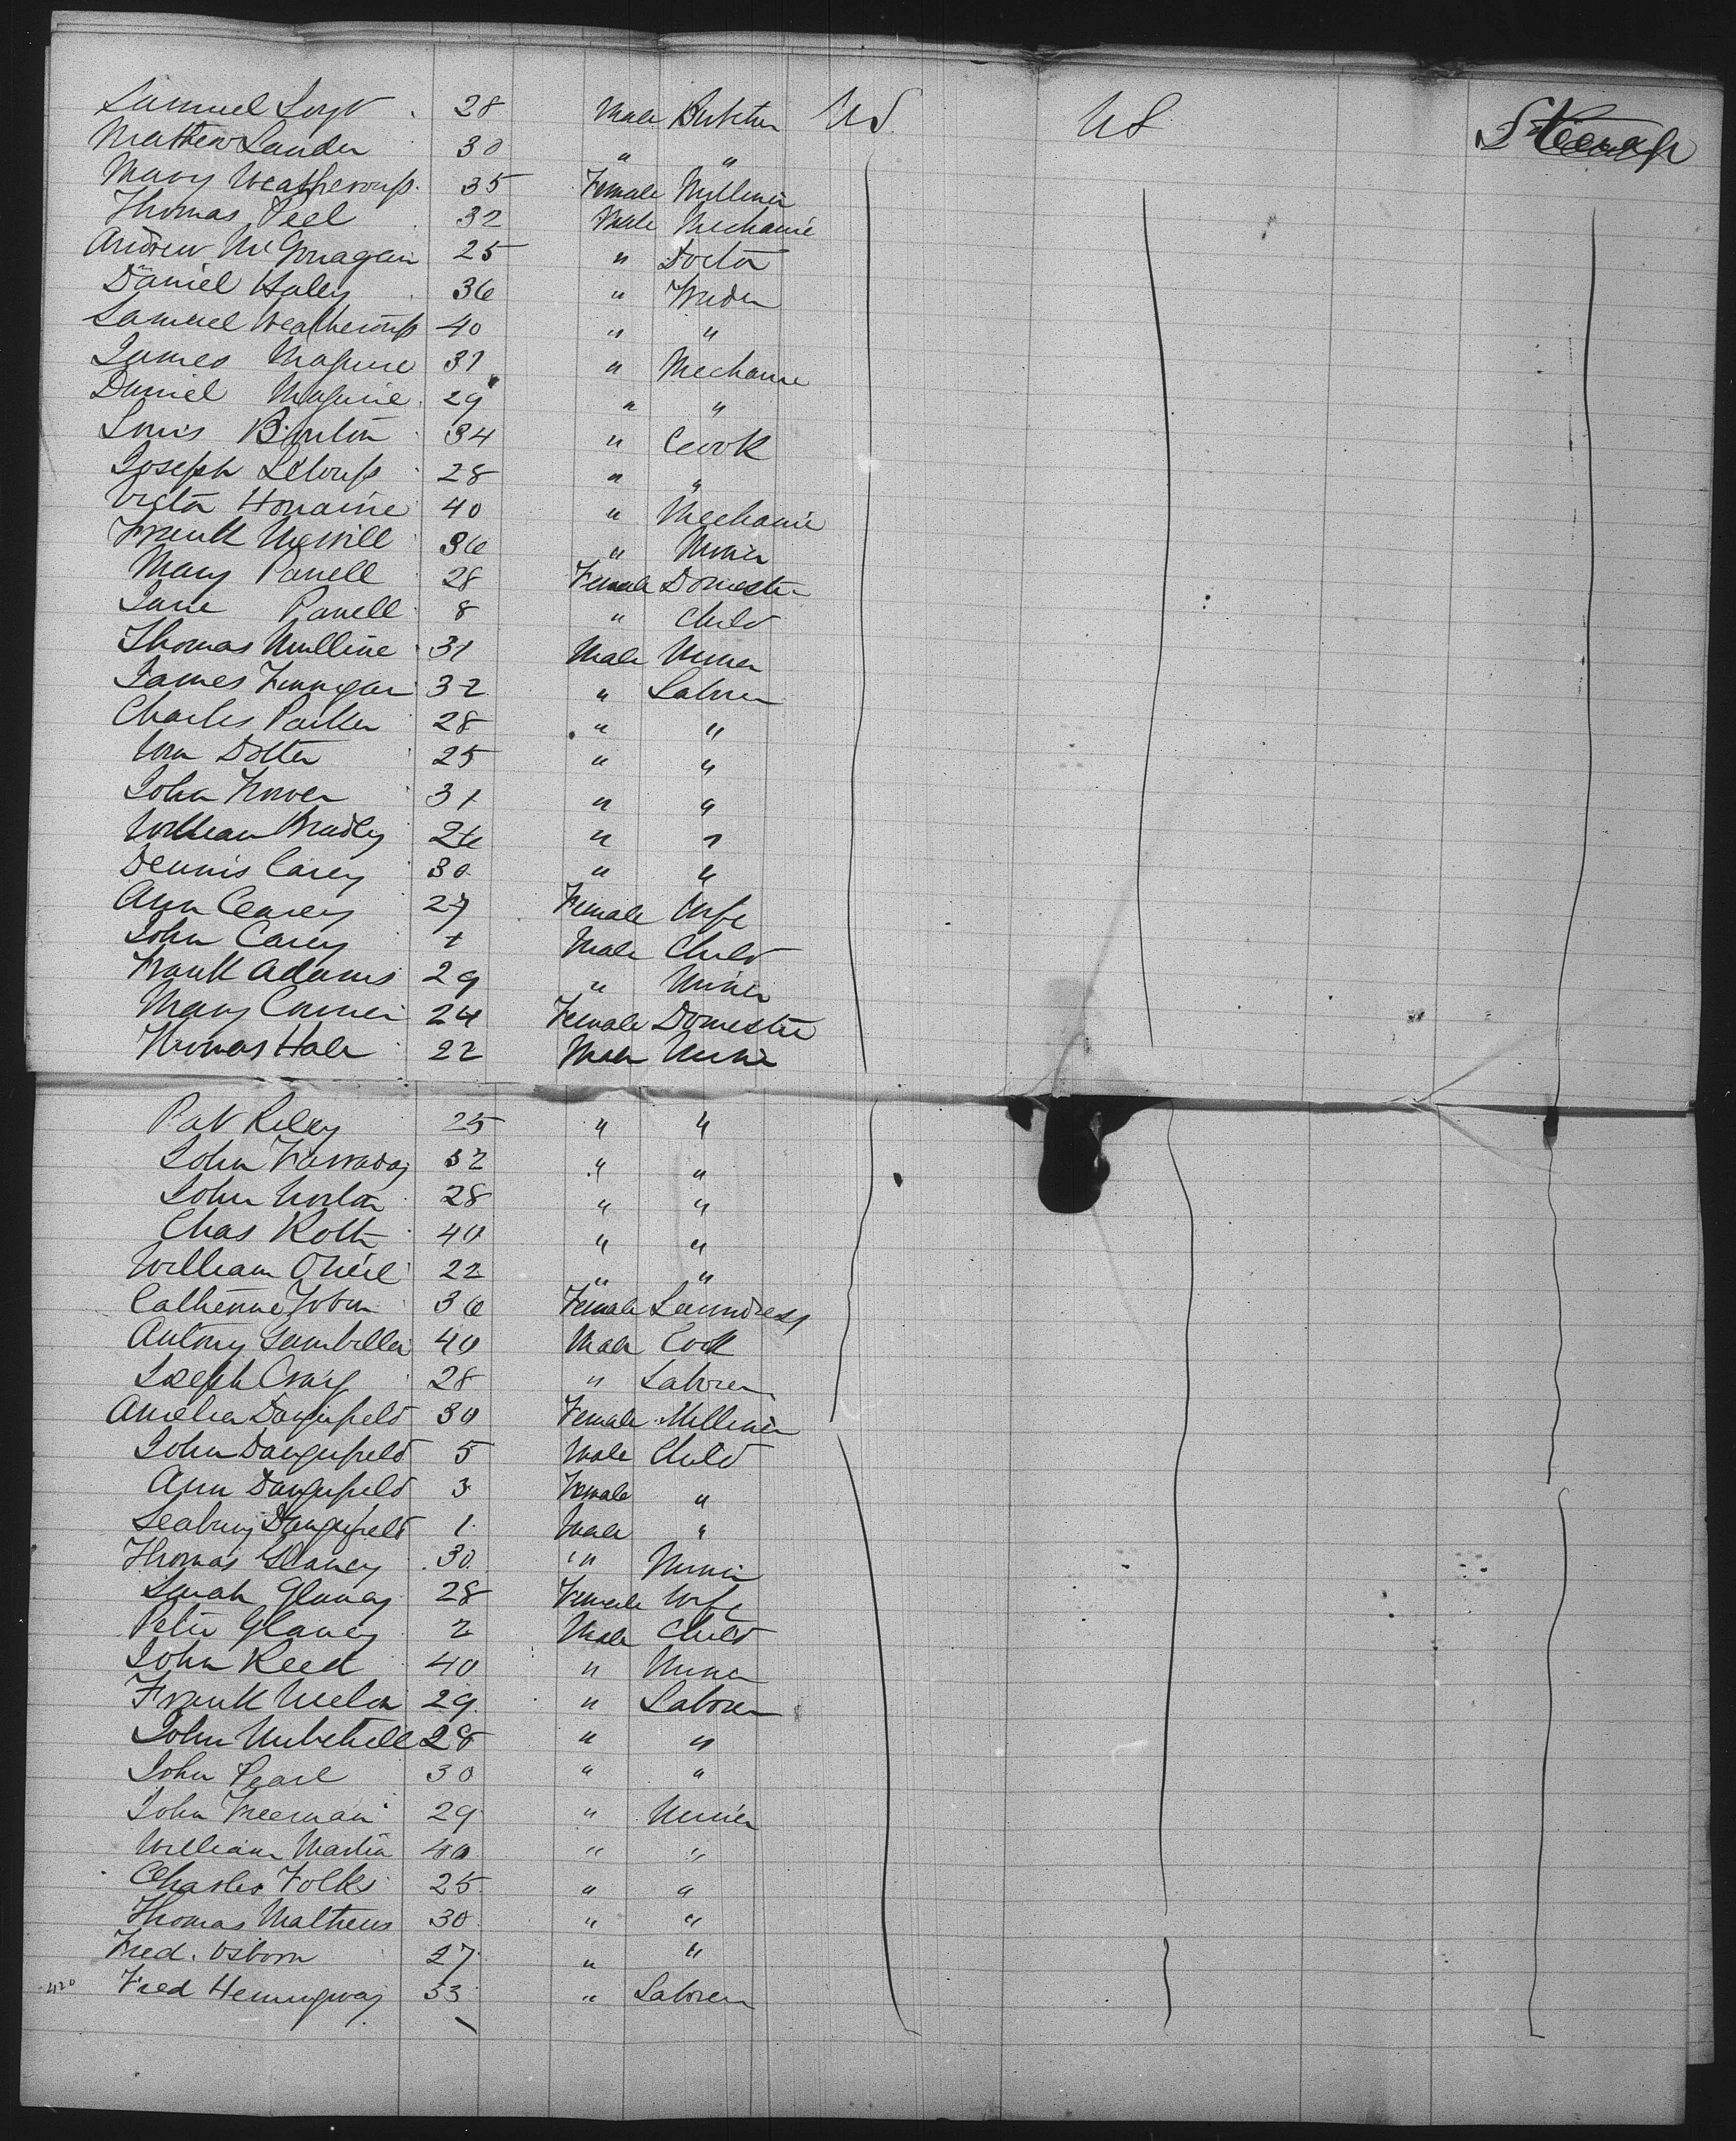 Samuel 28 Male Butcher US US Steerage
Mathew Lander 30 " "
Mary Weathercup 35 Female Milliner
Thomas Peel 32 Male Mechanic
Andrew McGonagan 25 " Doctor
Daniel Haley 36 " Trader
Samuel Weathercup 40 " "
James Maguire 31 " Mechanic
Daniel Maguire 29 " "
Louis 34 " Cook
Joseph 28 " "
Victor Honaine 40 " Mechanic
Frank Merrill 36 " Miner
Mary Panell 28 Female Domestic
Jane Panell 8 " Child
Thomas Mulline 31 Male Miner
James Finnegan 32 " Laborer
Charles Parker 28 " "
Wm Dotter 25 " "
John 31 " "
William Bradley 26 " "
Dennis Carey 30 " "
Ann Carey 27 Female Wife
John Carey 1 Male Child
Frank Adams 29 " Miner
Mary 24 Female Domestic
Thomas Hale 22 Male Miner
Pat Riley 25 " "
John Farraday 32 " "
John Norton 28 " "
Chas Roth 40 " "
William ONeil 22 " "
Catherine Tobin 36 Female Laundress
Antony 40 Male Cook
Joseph Craig 28 " Laborer
Amelia Dangerfield 30 Female Milliner
John Dangerfield 5 Male Child
Ann Dangerfield 3 Female "
Seabury Dangerfield 1 Male "
Thomas Glancy 30 " Miner
Sarah Glancy 28 Female Wife
Peter Glancy 2 Male Child
John Reed 40 " Miner
Frank 29 " Laborer
John 28 " "
John Pearl 30 " "
John Freeman 29 " Miner
William Martin 40 " "
Charles Folks 25 " "
Thomas Mathews 30 " "
Fred. Osborn 27 " "
420 Fred Hemingway 33 " Laborer